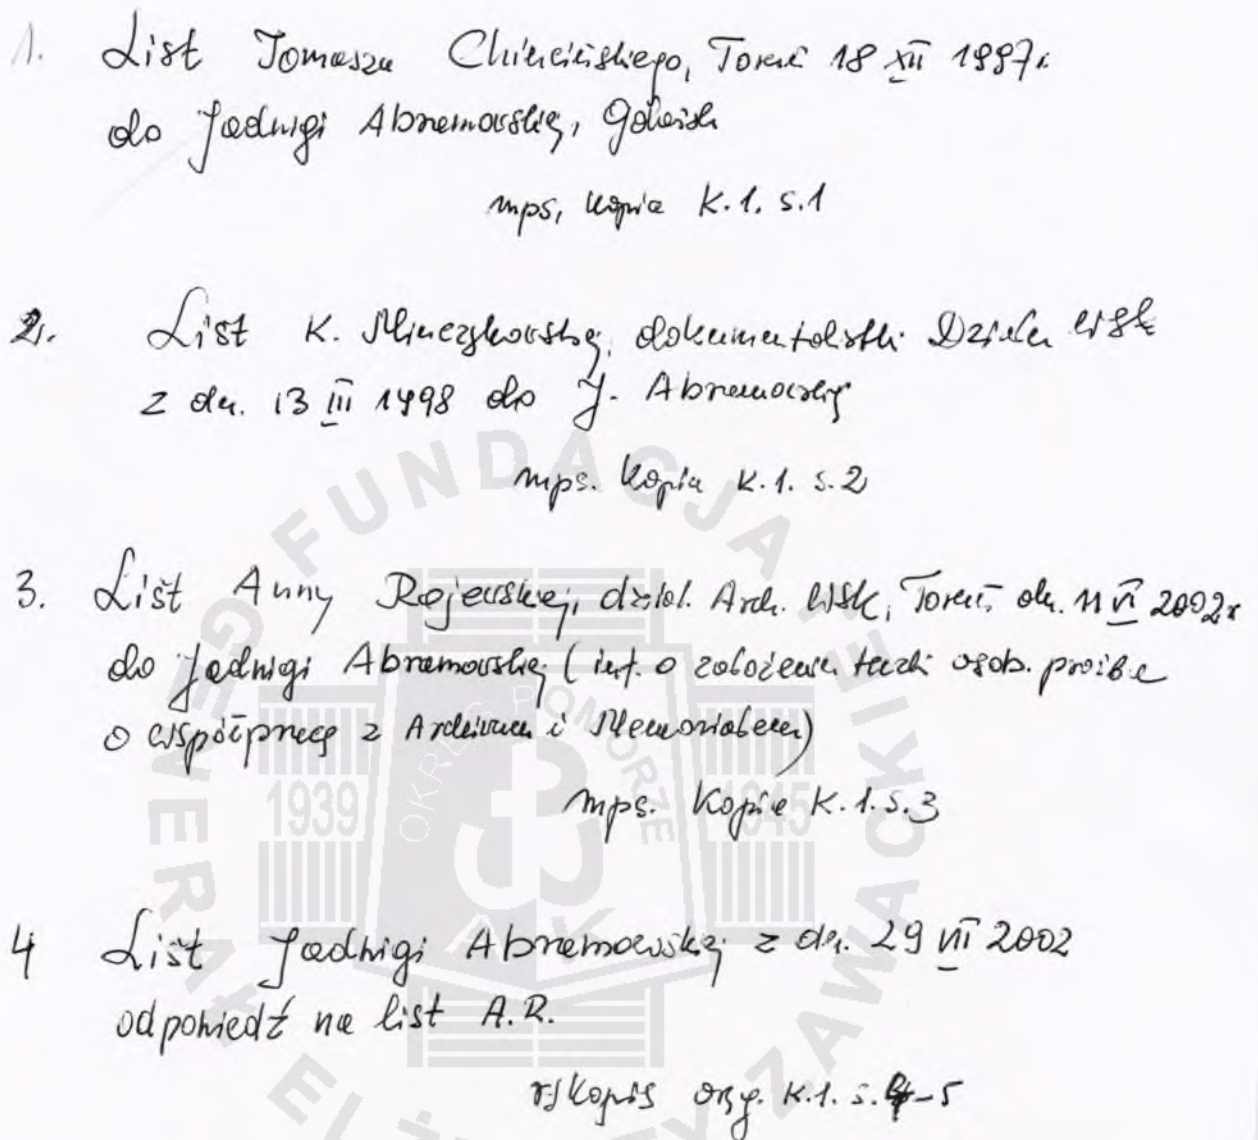 1. List Tomasza Chincińskiego, Toruń 18 XII 1997r.
do Jadwigi Abramowskiej, Gdańsk
mps, kopia K.1. s.1
2. List K. Minczykowskiej, dokumentalistki Działu WSK
z dn. 13 III 1998 do J. Abramowskiej
mps. kopia K.1. s.2
3. List Anny Rojewskiej, dział. Arch. WSK, Toruń, dn. 11 VI 2002r
do Jadwigi Abramowskiej (inf. o założeniu teczki osob. prośba
o współpracę z Archiwum i Memoriałem)
mps. Kopia K.1.s.3
4 List Jadwigi Abramowskiej z dn. 29 VII 2002
odpowiedź na list A.R.
rękopis oryg. K.1. s.4-5
FUNDACJA
GENERAŁ ELŻBIETY ZAWACKIEJ
OKRĘG POMORZE
1939
1945
AK